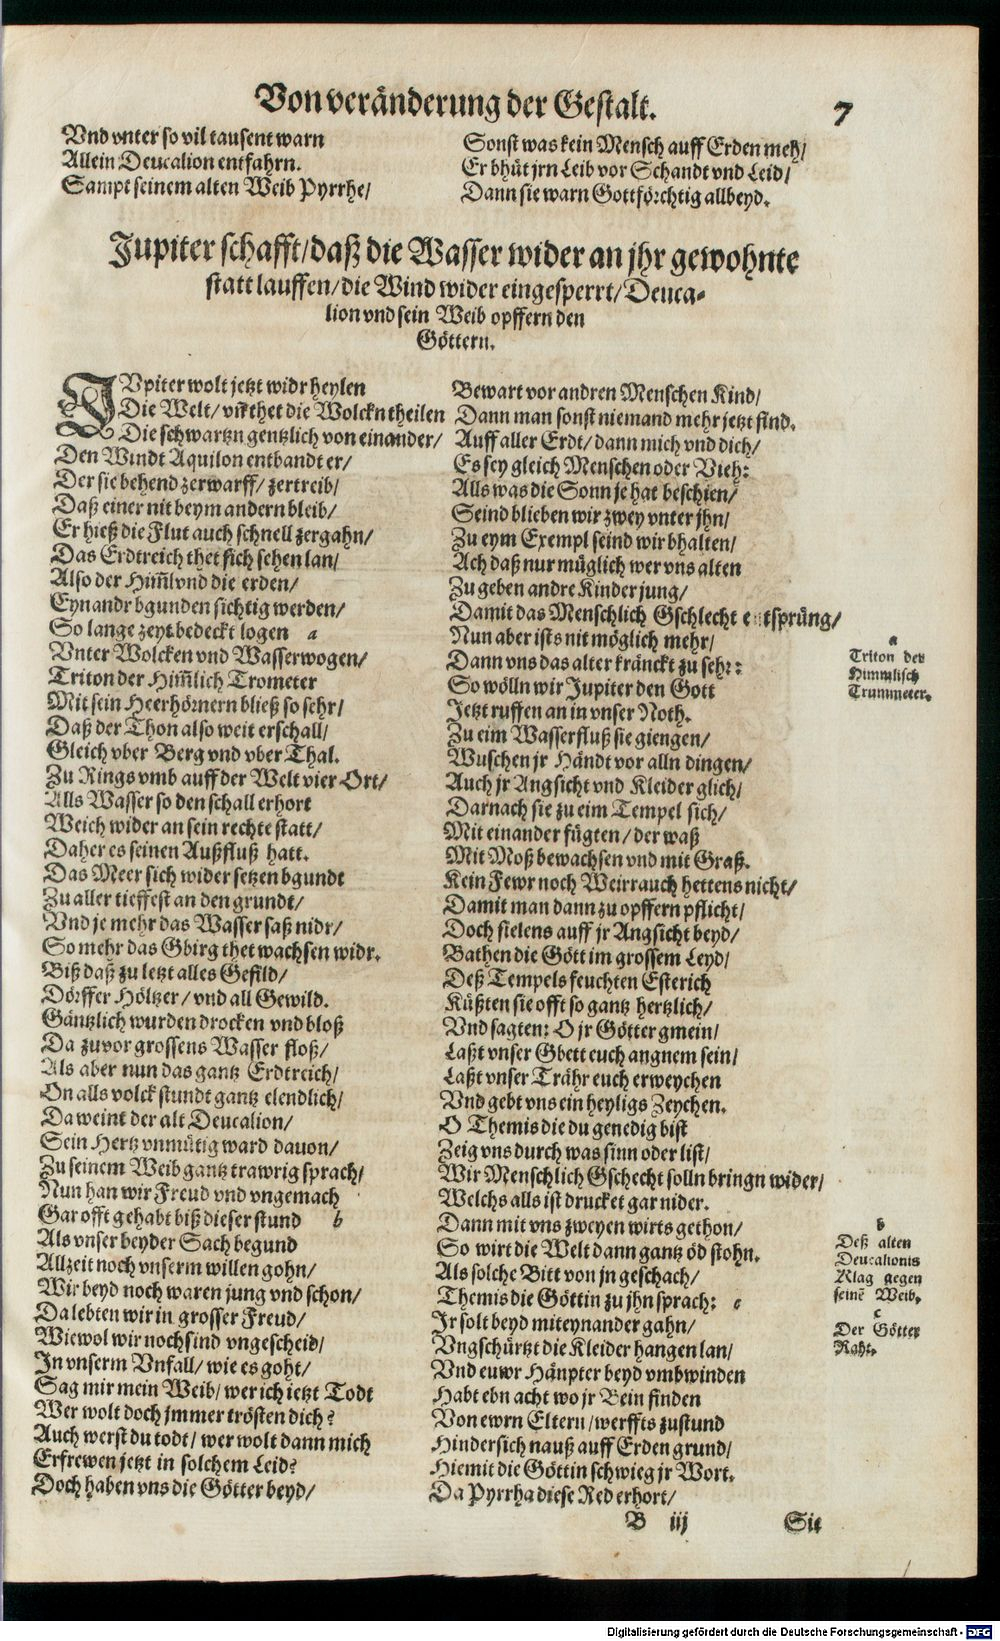 Von veränderung der Gestalt.
7
Vnd vnter so vil tausent warn
Allein Deucalion entfahrn.
Sampt seinem alten Weib Pyrrhe/
Sonst was kein Mensch auff Erden meh/
Er bhüt jrn Leib vor Schandt vnd Leid/
Dann sie warn Gottförchtig allbeyd.
Jupiter schafft/ daß die Wasser wider an jhr gewohnte
statt lauffen/ die Wind wider eingesperrt/ Deuca-
lion vnd sein Weib opffern den
Göttern.
JVpiter wolt jetzt widr heylen
Die Welt/ vñ thet die Wolckn theilen
Die schwartzn gentzlich von einander/
Den Windt Aquilon entbandt er/
Der sie behend zerwarff/ zertreib/
Daß einer nit beym andern bleib/
Er hieß die Flut auch schnell zergahn/
Das Erdtreich thet sich sehen lan/
Also der Him̄l vnd die erden/
Eynandr bgunden sichtig werden/
So lange zeyt bedeckt logen a
Vnter Wolcken vnd Wasserwogen/
Triton der Him̄lich Trometer
Mit sein Heerhörnern bließ so sehr/
Daß der Thon also weit erschall/
Gleich vber Berg vnd vber Thal.
Zu Rings vmb auff der Welt vier Ort/
Alls Wasser so den schall erhort
Weich wider an sein rechte statt/
Daher es seinen Außfluß hatt.
Das Meer sich wider setzen bgundt
Zu aller tieffest an den grundt/
Vnd je mehr das Wasser saß nidr/
So mehr das Gbirg thet wachsen widr.
Biß daß zu letzt alles Gefild/
Dörffer Höltzer/ vnd all Gewild.
Gäntzlich wurden drocken vnd bloß
Da zuvor grossens Wasser floß/
Als aber nun das gantz Erdtreich/
On alls volck stundt gantz elendlich/
Da weint der alt Deucalion/
Sein Hertz vnmütig ward davon/
Zu seinem Weib gantz trawrig sprach/
Nun han wir Freud vnd vngemach
Gar offt gehabt biß dieser stund b
Als vnser beyder Sach begund
Allzeit noch vnserm willen gohn/
Wir beyd noch waren jung vnd schon/
Da lebten wir in grosser Freud/
Wiewol wir noch sind vngescheid/
In vnserm Vnfall/ wie es goht/
Sag mir mein Weib/ wer ich jetzt Todt
Wer wolt doch jmmer trösten dich?
Auch werst du todt/ wer wolt dann mich
Erfrewen jetzt in solchem Leid?
Doch haben vns die Götter beyd/
Bewart vor andren Menschen Kind/
Dann man sonst niemand mehr jetzt find.
Auff aller Erdt/ dann mich vnd dich/
Es sey gleich Menschen oder Vieh:
Alls was die Sonn je hat beschien/
Seind blieben wir zwey vnter jhn/
Zu eym Exempl seind wir bhalten/
Ach daß nur müglich wer vns alten
Zu geben andre Kinder jung/
Damit das Menschlich Gschlecht entsprüng/
Nun aber ists nit möglich mehr/
Dann vns das alter kränckt zu sehr:
So wölln wir Jupiter den Gott
Jetzt ruffen an in vnser Noth.
Zu eim Wasserfluß sie giengen/
Wuschen jr Händt vor alln dingen/
Auch jr Angsicht vnd Kleider glich/
Darnach sie zu eim Tempel sich/
Mit einander fügten/ der waß
Mit Moß bewachsen vnd mit Graß.
Kein Fewr noch Weirrauch hettens nicht/
Damit man dann zu opffern pflicht/
Doch fielens auff jr Angsicht beyd/
Bathen die Gött im grossem Leyd/
Deß Tempels feuchten Esterich
Küßten sie offt so gantz hertzlich/
Vnd sagten: O jr Götter gmein/
Laßt vnser Gbett euch angnem sein/
Laßt vnser Trähr euch erweychen
Vnd gebt vns ein heyligs Zeychen.
O Themis die du genedig bist
Zeig vns durch was sinn oder list/
Wir Menschlich Gschecht solln bringn wider/
Welchs alls ist drucket gar nider.
Dann mit vns zweyen wirts gethon/
So wirt die Welt dann gantz öd stohn.
Als solche Bitt von jn geschach/
Themis die Göttin zu jhn sprach: c
Jr solt beyd miteynander gahn/
Vngschürtzt die Kleider hangen lan/
Vnd euwr Häupter beyd vmbwinden
Habt ebn acht wo jr Bein finden
Von ewrn Eltern/ werffts zustund
Hindersich nauß auff Erden grund/
Hiemit die Göttin schwieg jr Wort.
Da Pyrrha diese Red erhort/
a
Triton des
Himmlisch
Trummeter.
b
Deß alten
Deucalionis
Klag gegen
seinē Weib.
c
Der Götter
Raht.
B iij
Sie
Digitalisierung gefördert durch die Deutsche Forschungsgemeinschaft - DFG